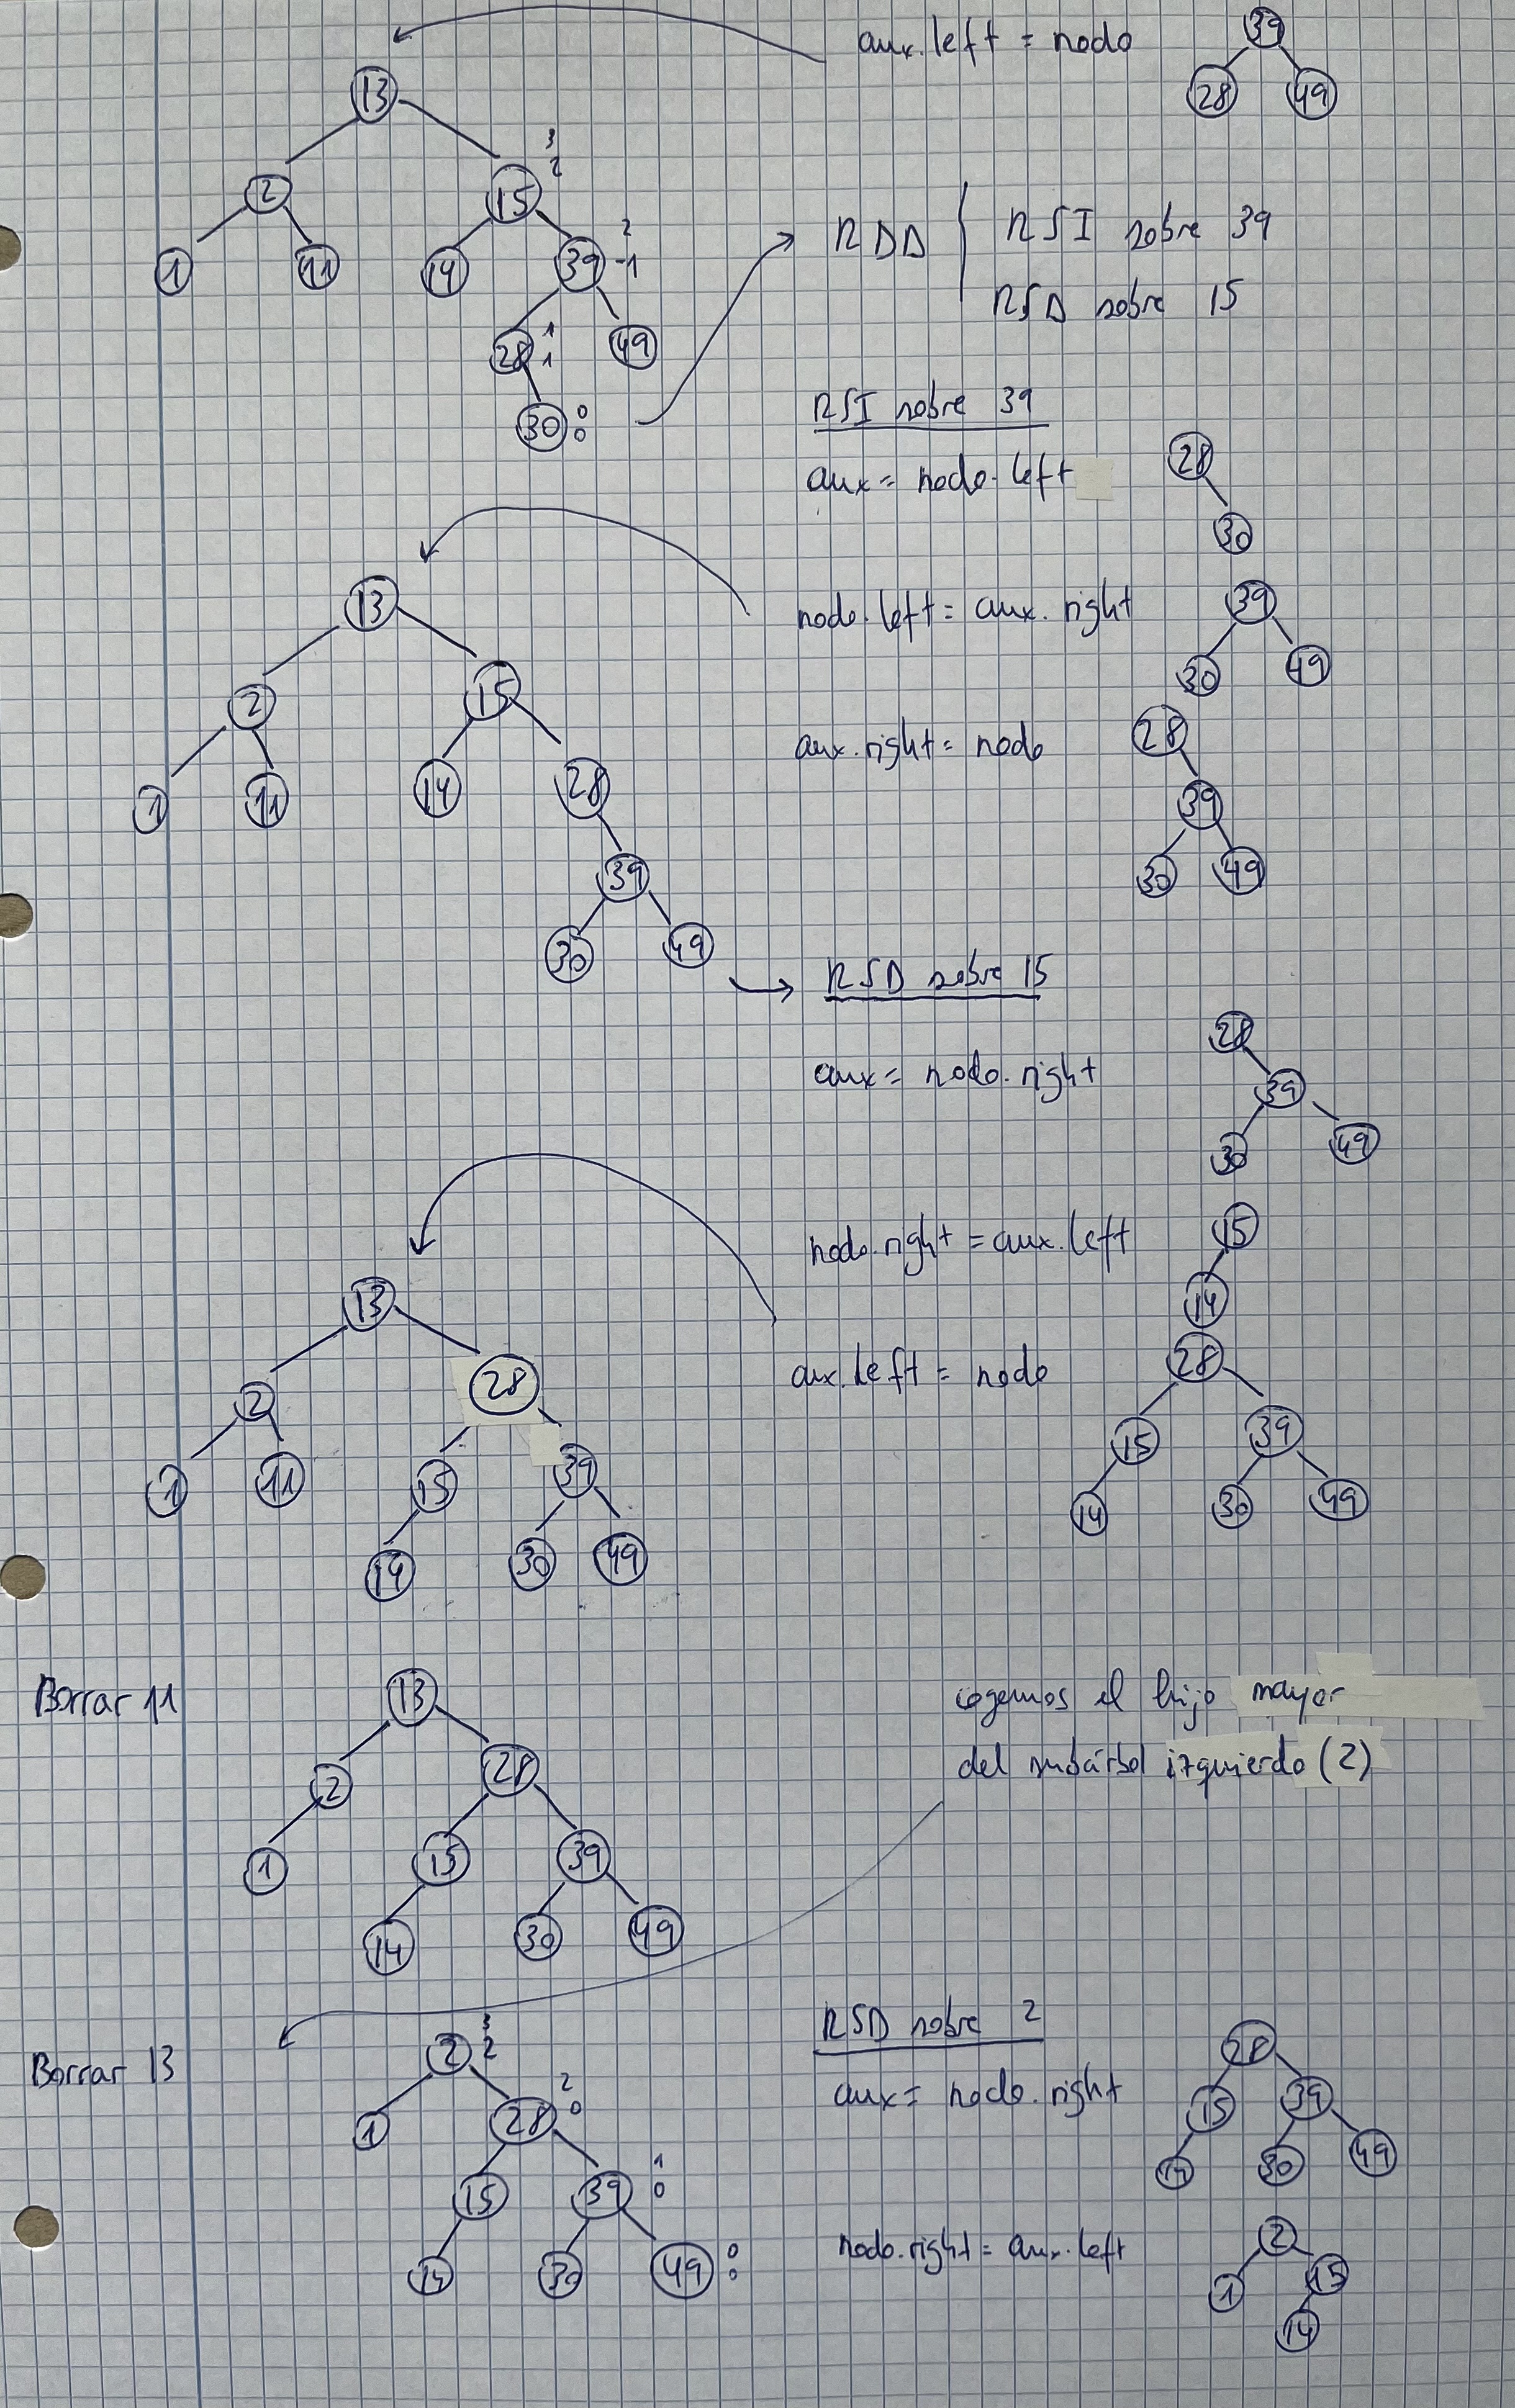 aux.left = nodo
39
28 49
13
2 15 3 2
1 11 14 39 2 -1
28 1 1 49
30 0 0
RDD { RSI sobre 39
RSD sobre 15
RSI sobre 39
aux = nodo.left
28
30
nodo.left = aux.right
39
30 49
aux.right = nodo
28
39
30 49
13
2 15
1 11 14 28
39
30 49
RSD sobre 15
aux = nodo.right
28
39
30 49
nodo.right = aux.left
15
14
aux.left = nodo
28
15 39
14 30 49
13
2 28
1 11 15 39
14 30 49
Borrar 11
13
2 28
1 15 39
14 30 49
cogemos el hijo mayor
del subárbol izquierdo (2)
Borrar 13
2 3 2
1 28 2 0
15 39 1 0
14 30 49 0 0
RSD sobre 2
aux = nodo.right
28
15 39
14 30 49
nodo.right = aux.left
2
1 15
14